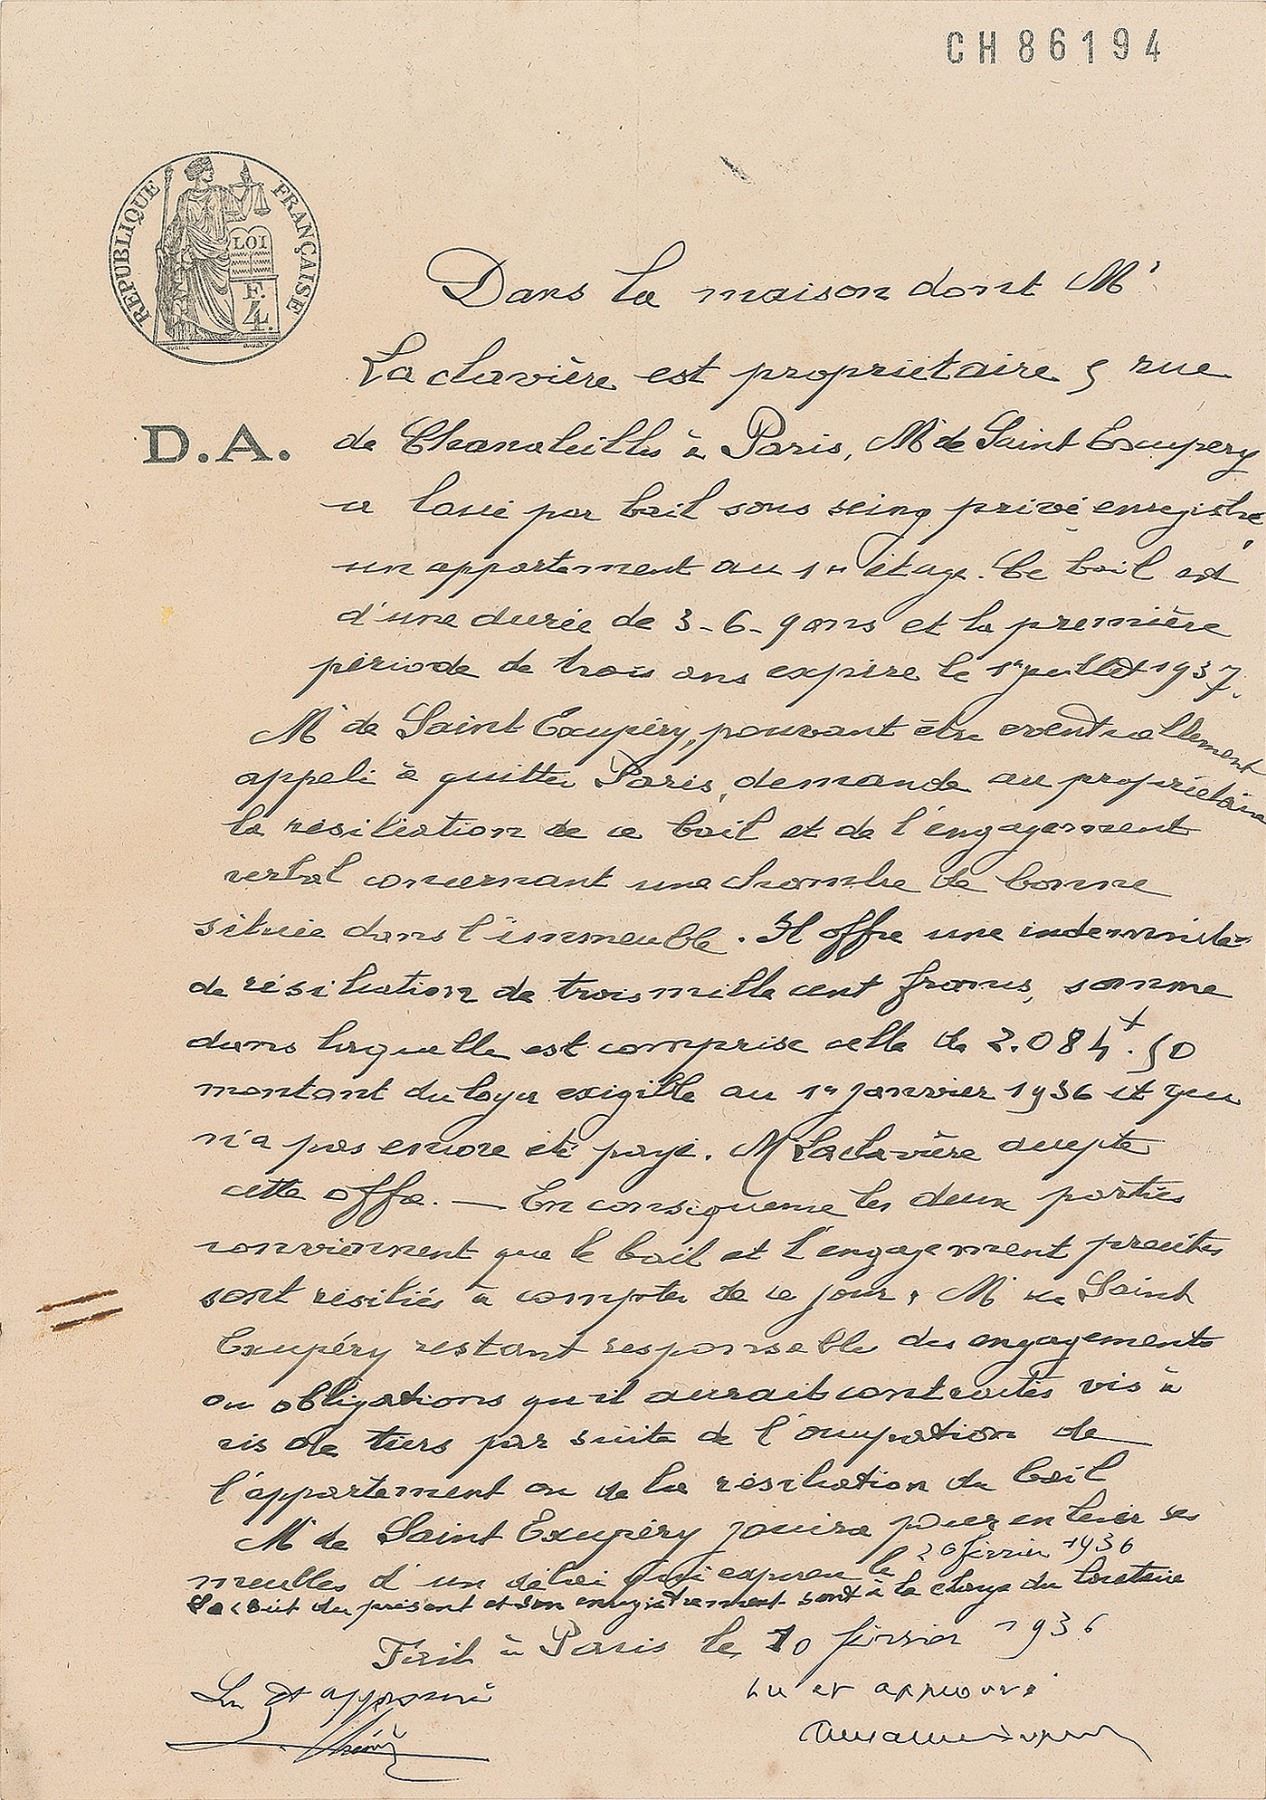 CH86194
RÉPUBLIQUE FRANÇAISE
LOI
F.
4.
D.A.
Dans la maison dont Mr
Laclavière est propriétaire 5 rue
de Chanaleilles à Paris, Mr de Saint Exupéry
a loué par bail sous seing privé enregistré,
un appartement au 1er étage. Ce bail est
d'une durée de 3-6-9 ans et la première
période de trois ans expire le 1er juillet 1937.
Mr de Saint Exupéry, pouvant être eventuellement
appelé à quitter Paris, demande au propriétaire
la résiliation de ce bail et de l'engagement
verbal concernant une chambre de bonne
située dans l'immeuble. Il offre une indemnité
de résiliation de trois mille cent francs, somme
dans laquelle est comprise celle de 2.084f.50
montant du loyer exigible au 1er janvier 1936 et qui
n'a pas encore été payé. Mr Laclavière accepte
cette offre. — En conséquence les deux parties
conviennent que le bail et l'engagement précités
sont résiliés à compter de ce jour, Mr de Saint
Exupéry restant responsable des engagements
ou obligations qu'il aurait contractés vis à
vis de tiers par suite de l'occupation de
l'appartement ou de la résiliation du bail
Mr de Saint Exupéry jouira pour enlever ses
meubles d'un délai qui expire le 20 février 1936
Le coût du présent et son enregistrement sont à la charge du locataire
Fait à Paris le 10 février 1936
Lu et approuvé
Lu et approuvé